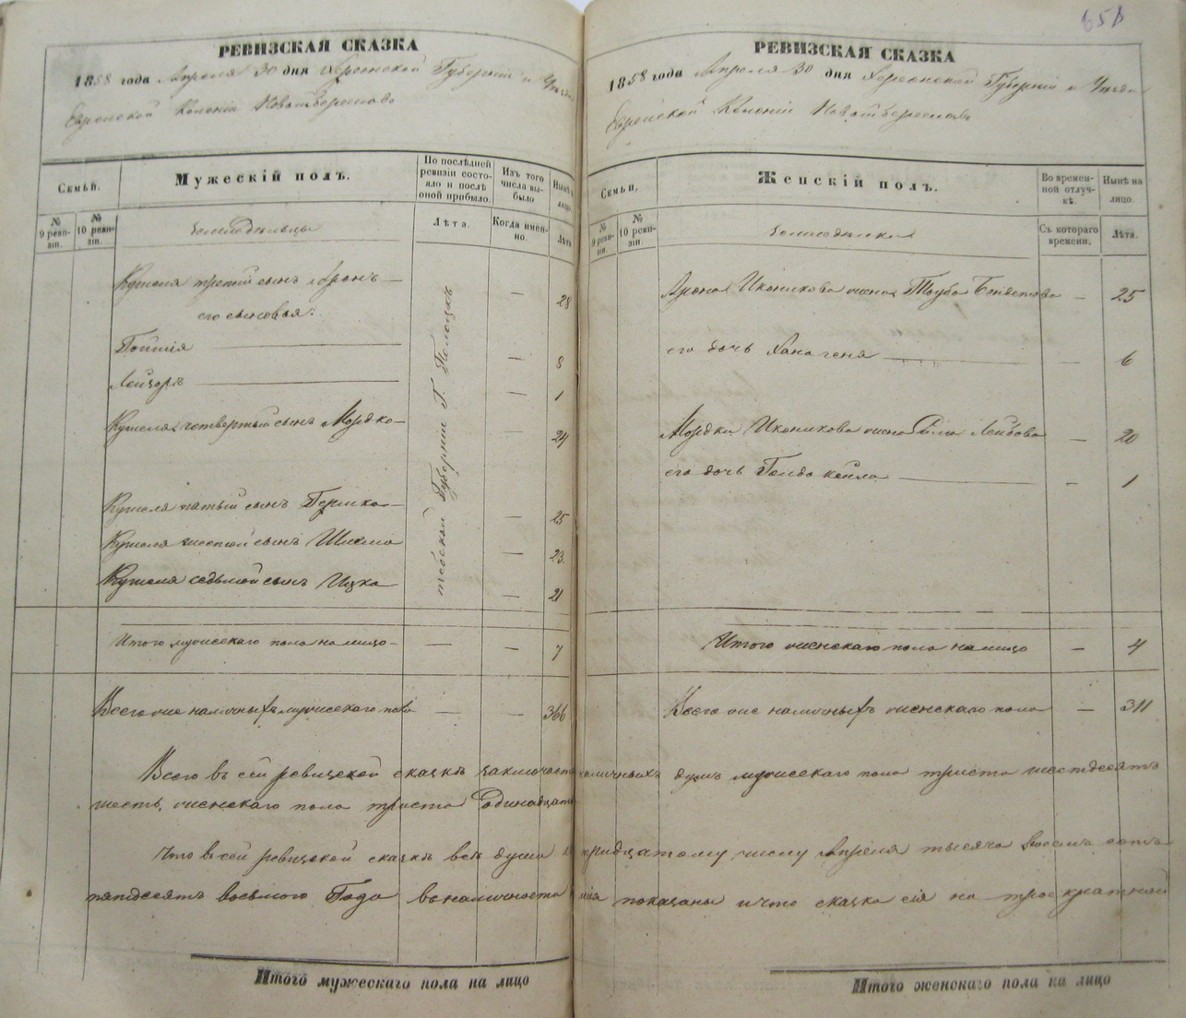 658
РЕВИЗСКАЯ СКАЗКА
1858 года Апреля 30 дня Херсонской Губерніи и Уезда
Еврейской Колоніи Новый Бериславъ
Семьи.
Мужескій полъ.
По послѣдней ревизіи состояло и послѣ оной прибыло.
Изъ того числа выбыло
Нынѣ на лицо.
№ 9 ревизіи.
№ 10 ревизіи.
Лѣта.
Когда именно.
Лѣта
Кушеля третій сынъ Аронъ — 28
его сыновья:
8
Лейзоръ — 1
Кушеля четвертый сынъ Мордко — 24
Кушеля пятый сынъ Гершко — 25
Кушеля шестой сынъ Шлема — 23
Кушеля седьмой сынъ Ицко — 21
тебской Губерніи Г. Полоцкъ
Итого мужескаго пола на лицо — — 7
Всего же наличныхъ мужескаго пола — — 366
РЕВИЗСКАЯ СКАЗКА
1858 года Апреля 30 дня Херсонской Губерніи и Уезда
Еврейской Колоніи Новый Бериславъ
Семьи.
Женскій полъ.
Во временной отлучкѣ.
Нынѣ на лицо.
№ 9 ревизіи.
№ 10 ревизіи.
Съ котораго времени.
Лѣта.
Арона Иконикова жена Тауба — 25
его дочь Хана геня — 6
Мордки Иконикова жена Лейбова — 20
его дочь Голда — 1
Итого женскаго пола на лицо — 4
Всего же наличныхъ женскаго пола — 311
Всего въ сей ревизской сказкѣ наличныхъ душъ мужескаго пола триста шестдесятъ
шесть, женскаго пола триста Одинадцать
Что въ сей ревизской сказкѣ всѣ души тридцатому числу Апреля тысяча восемь сотъ
пятдесятъ восьмого Года показаны и что сказка сія на троекратной
Итого мужескаго пола на лицо
Итого женскаго пола на лицо